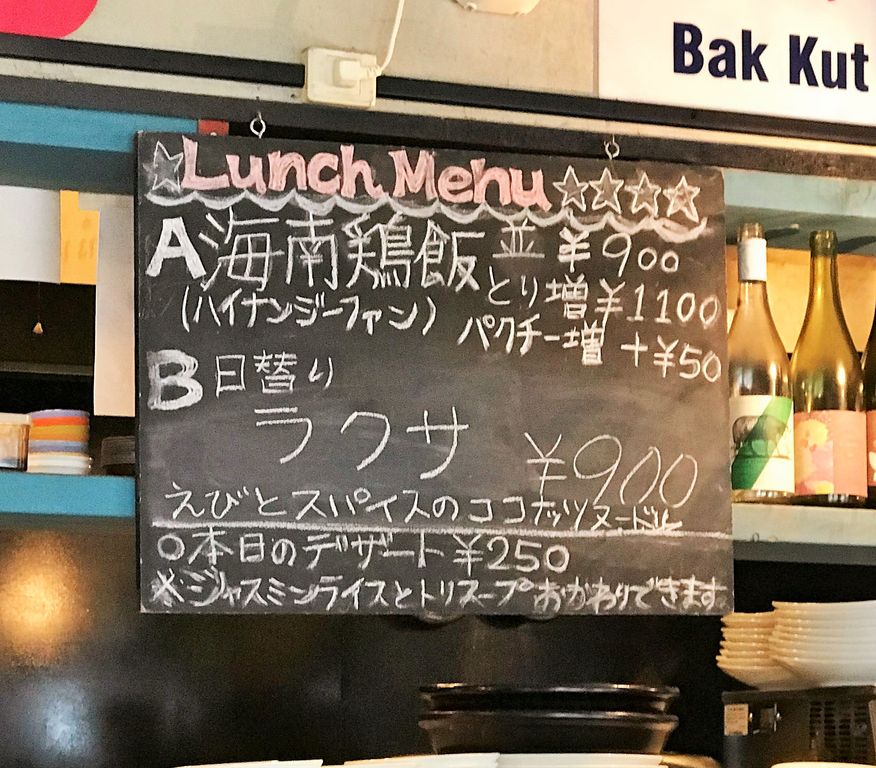 Bak Kut
☆Lunch Menu☆☆☆☆
A 海南鶏飯 並 ¥900
(ハイナンジーファン) とり増 ¥1100
パクチー増 +¥50
B 日替り
ラクサ ¥900
えびとスパイスのココナッツヌードル
○本日のデザート ¥250
※ジャスミンライスとトリスープおかわりできます